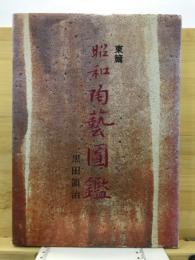 東篇
昭和陶藝圖鑑
黒田領治